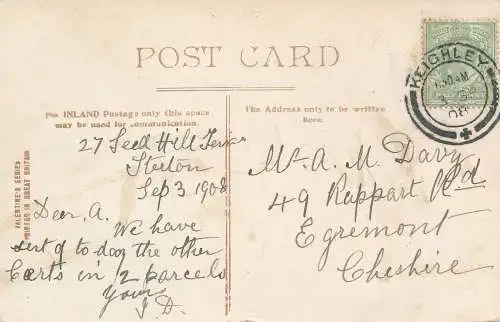 POST CARD
KEIGHLEY
08
For INLAND Postage only this space
may be used for communication.
The Address only to be written
here.
VALENTINE'S SERIES
PRINTED IN GREAT BRITAIN
27 Seed Hill Terrace
Steeton
Sep 3 1908
Dear A.
We have
sent off to day the other
Carts in 2 parcels
Yours
J.D.
Mr. A. M. Davy
49 Rappart Rd
Egremont
Cheshire